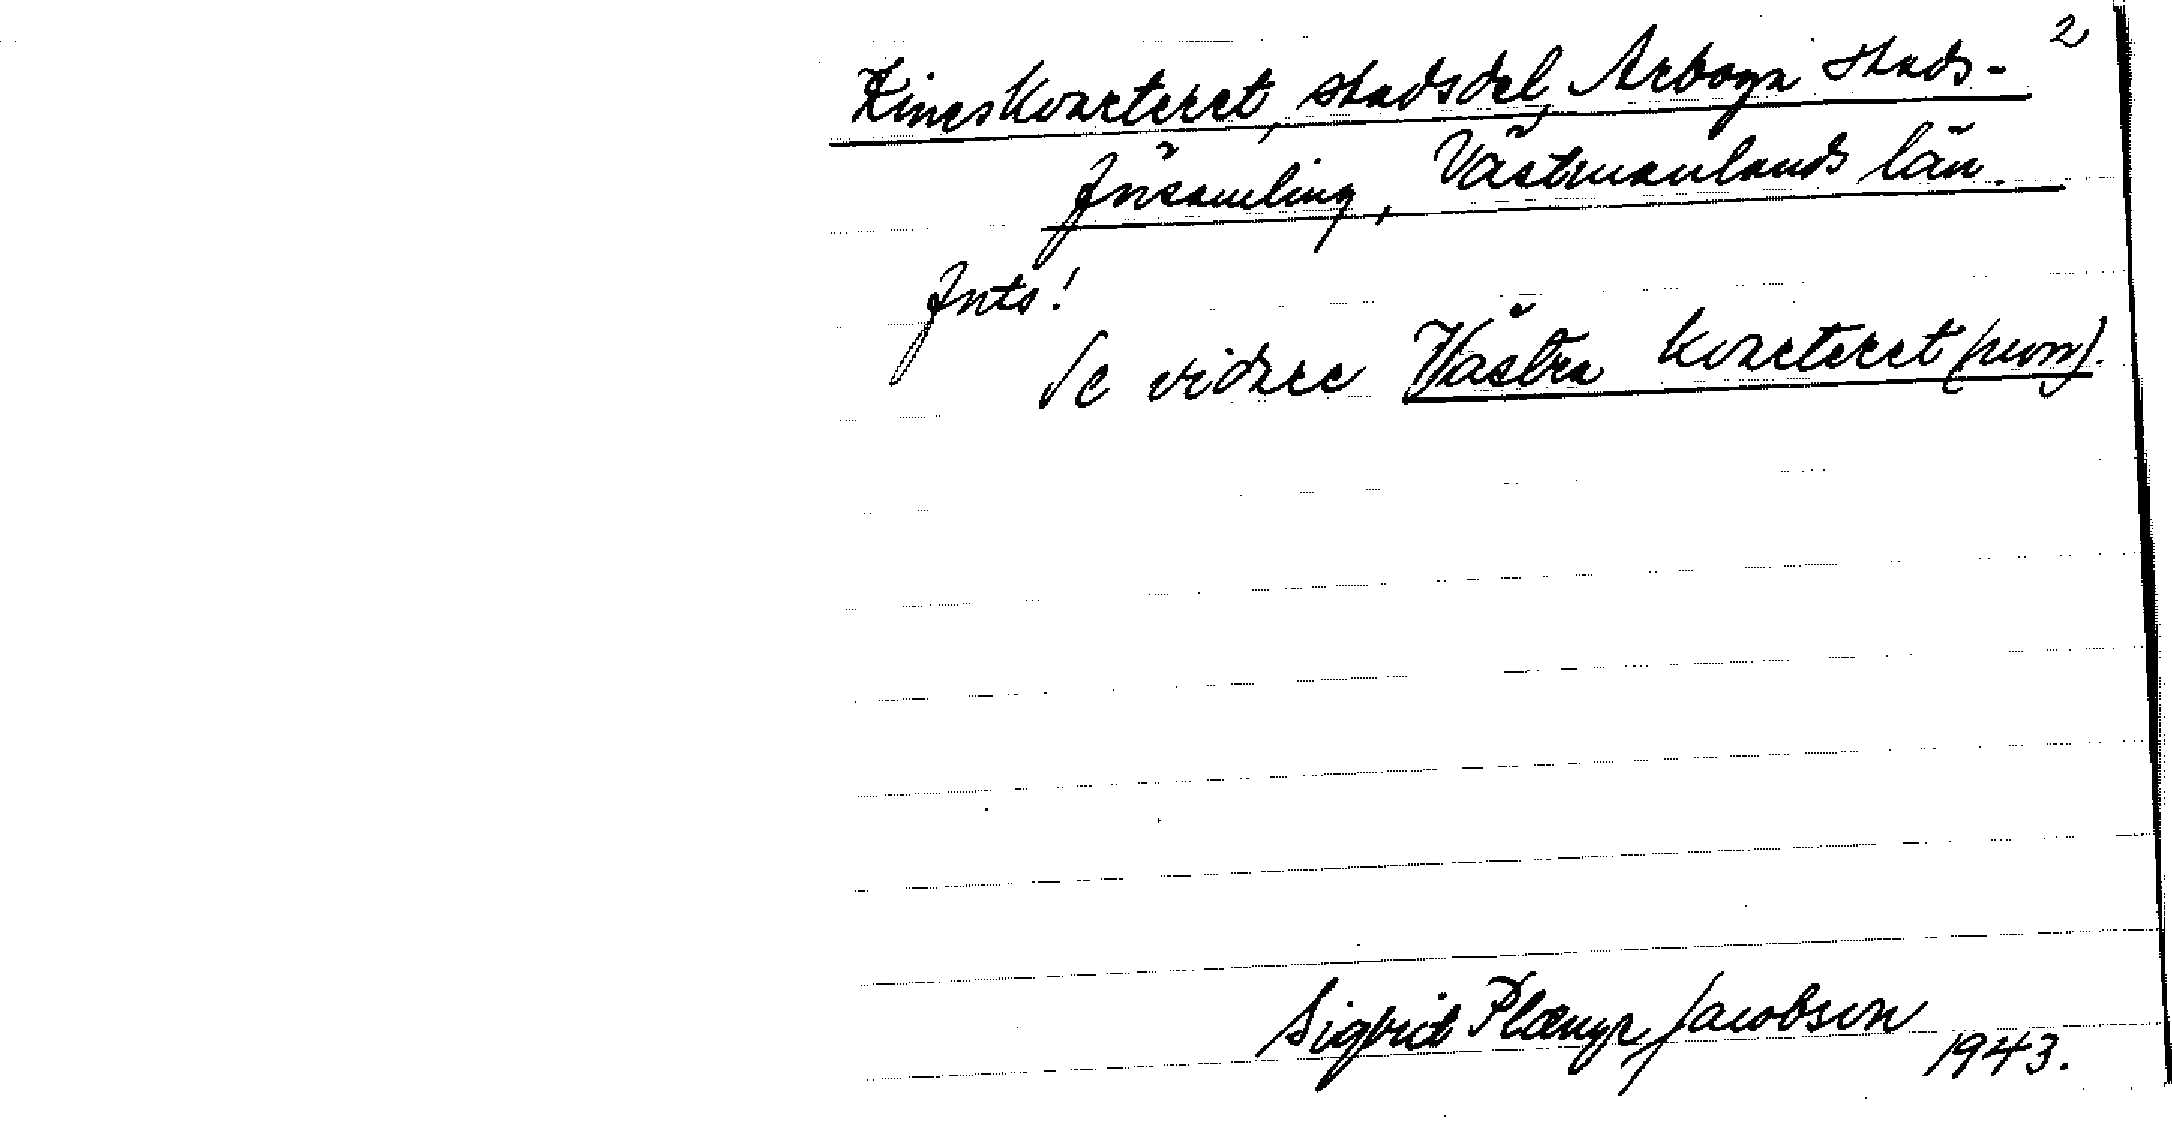 2
Kineskvarteret, stadsdel, Arboga stads-
församling, Västmanlands län.
Inte!
Se vidare Västra kvarteret (norr).
Sigfrid Plænge Jacobson
1943.